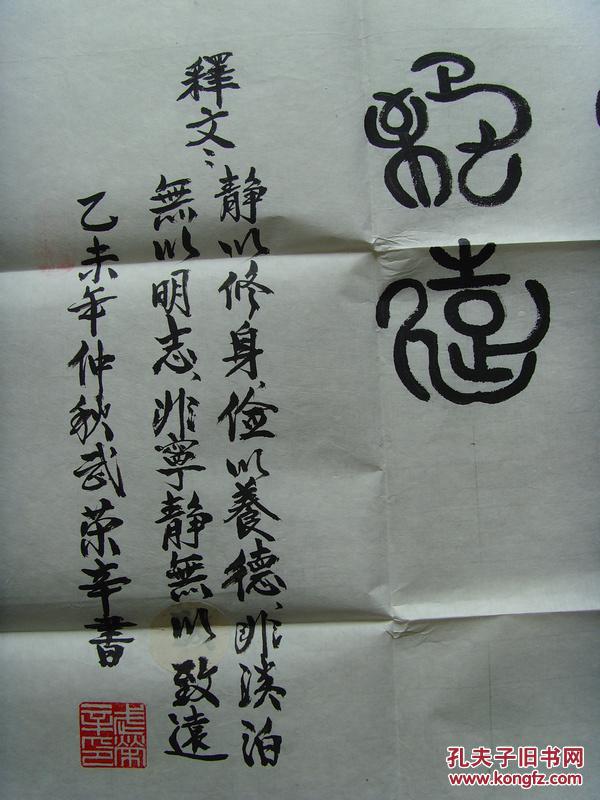 致
遠
釋文：
靜以修身、儉以養德、非淡泊
無以明志、非寧靜無以致遠
乙未年仲秋武荣辛書
武榮辛印
孔夫子旧书网
www.kongfz.com